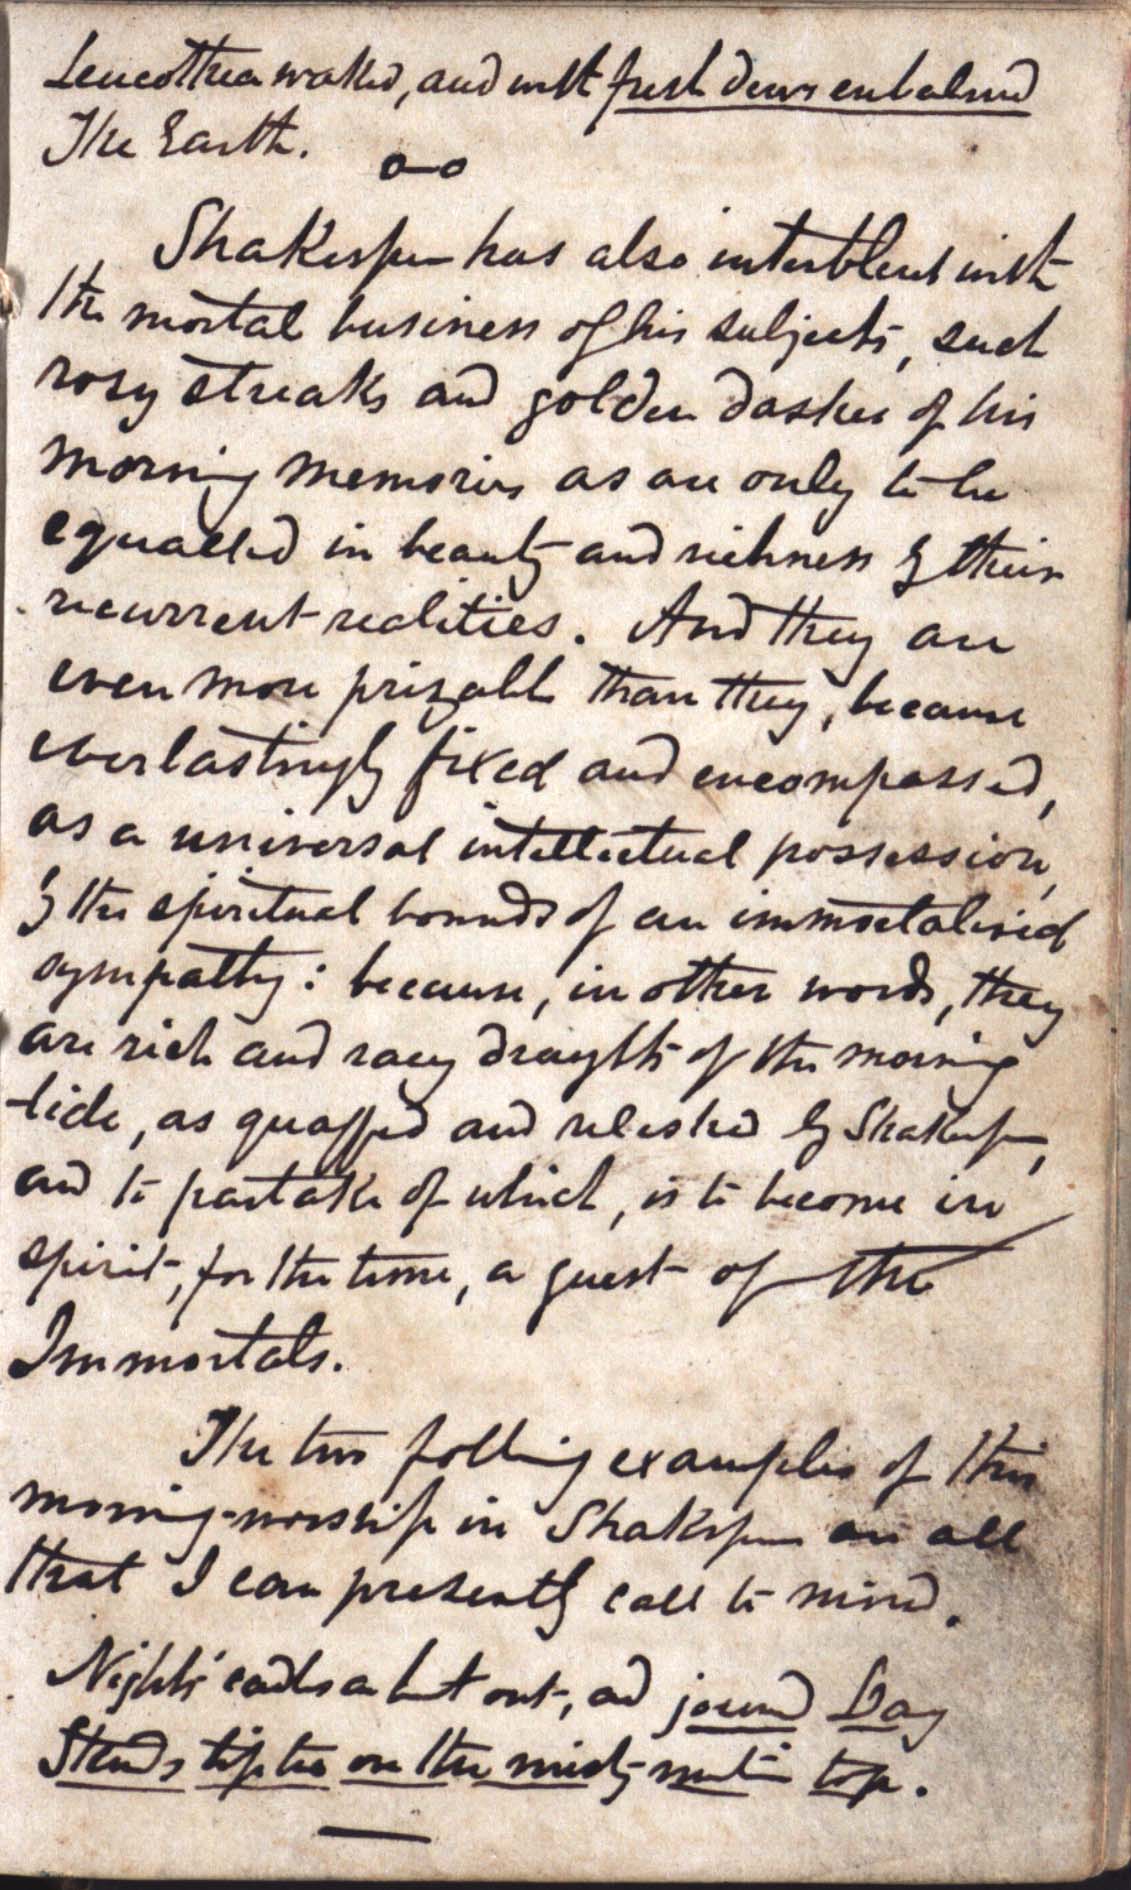 Leucothea waked, and with fresh dews enbalmd
The Earth.
Shakespere has also interblent with
the mortal business of his subjects, such
rosy streaks and golden dashes of his
morning memories as are only to be
equalled in beauty and richness by their
recurrent realities. And they are
even more prizable than they, because
everlastingly fixed and encompassed,
as a universal intellectual possession,
by the spiritual bounds of an immortalised
sympathy: because, in other words, they
are rich and racy draughts of the morning
tide, as quaffed and relished by Shakespere,
and to partake of which, is to become in
spirit, for the time, a guest of the
Immortals.
The two follwing examples of this
morning-worship in Shakspere are all
that I can presently call to mind.
Night's candles are burnt out, and jocund Day
Stands tiptoe on the misty mountain top.